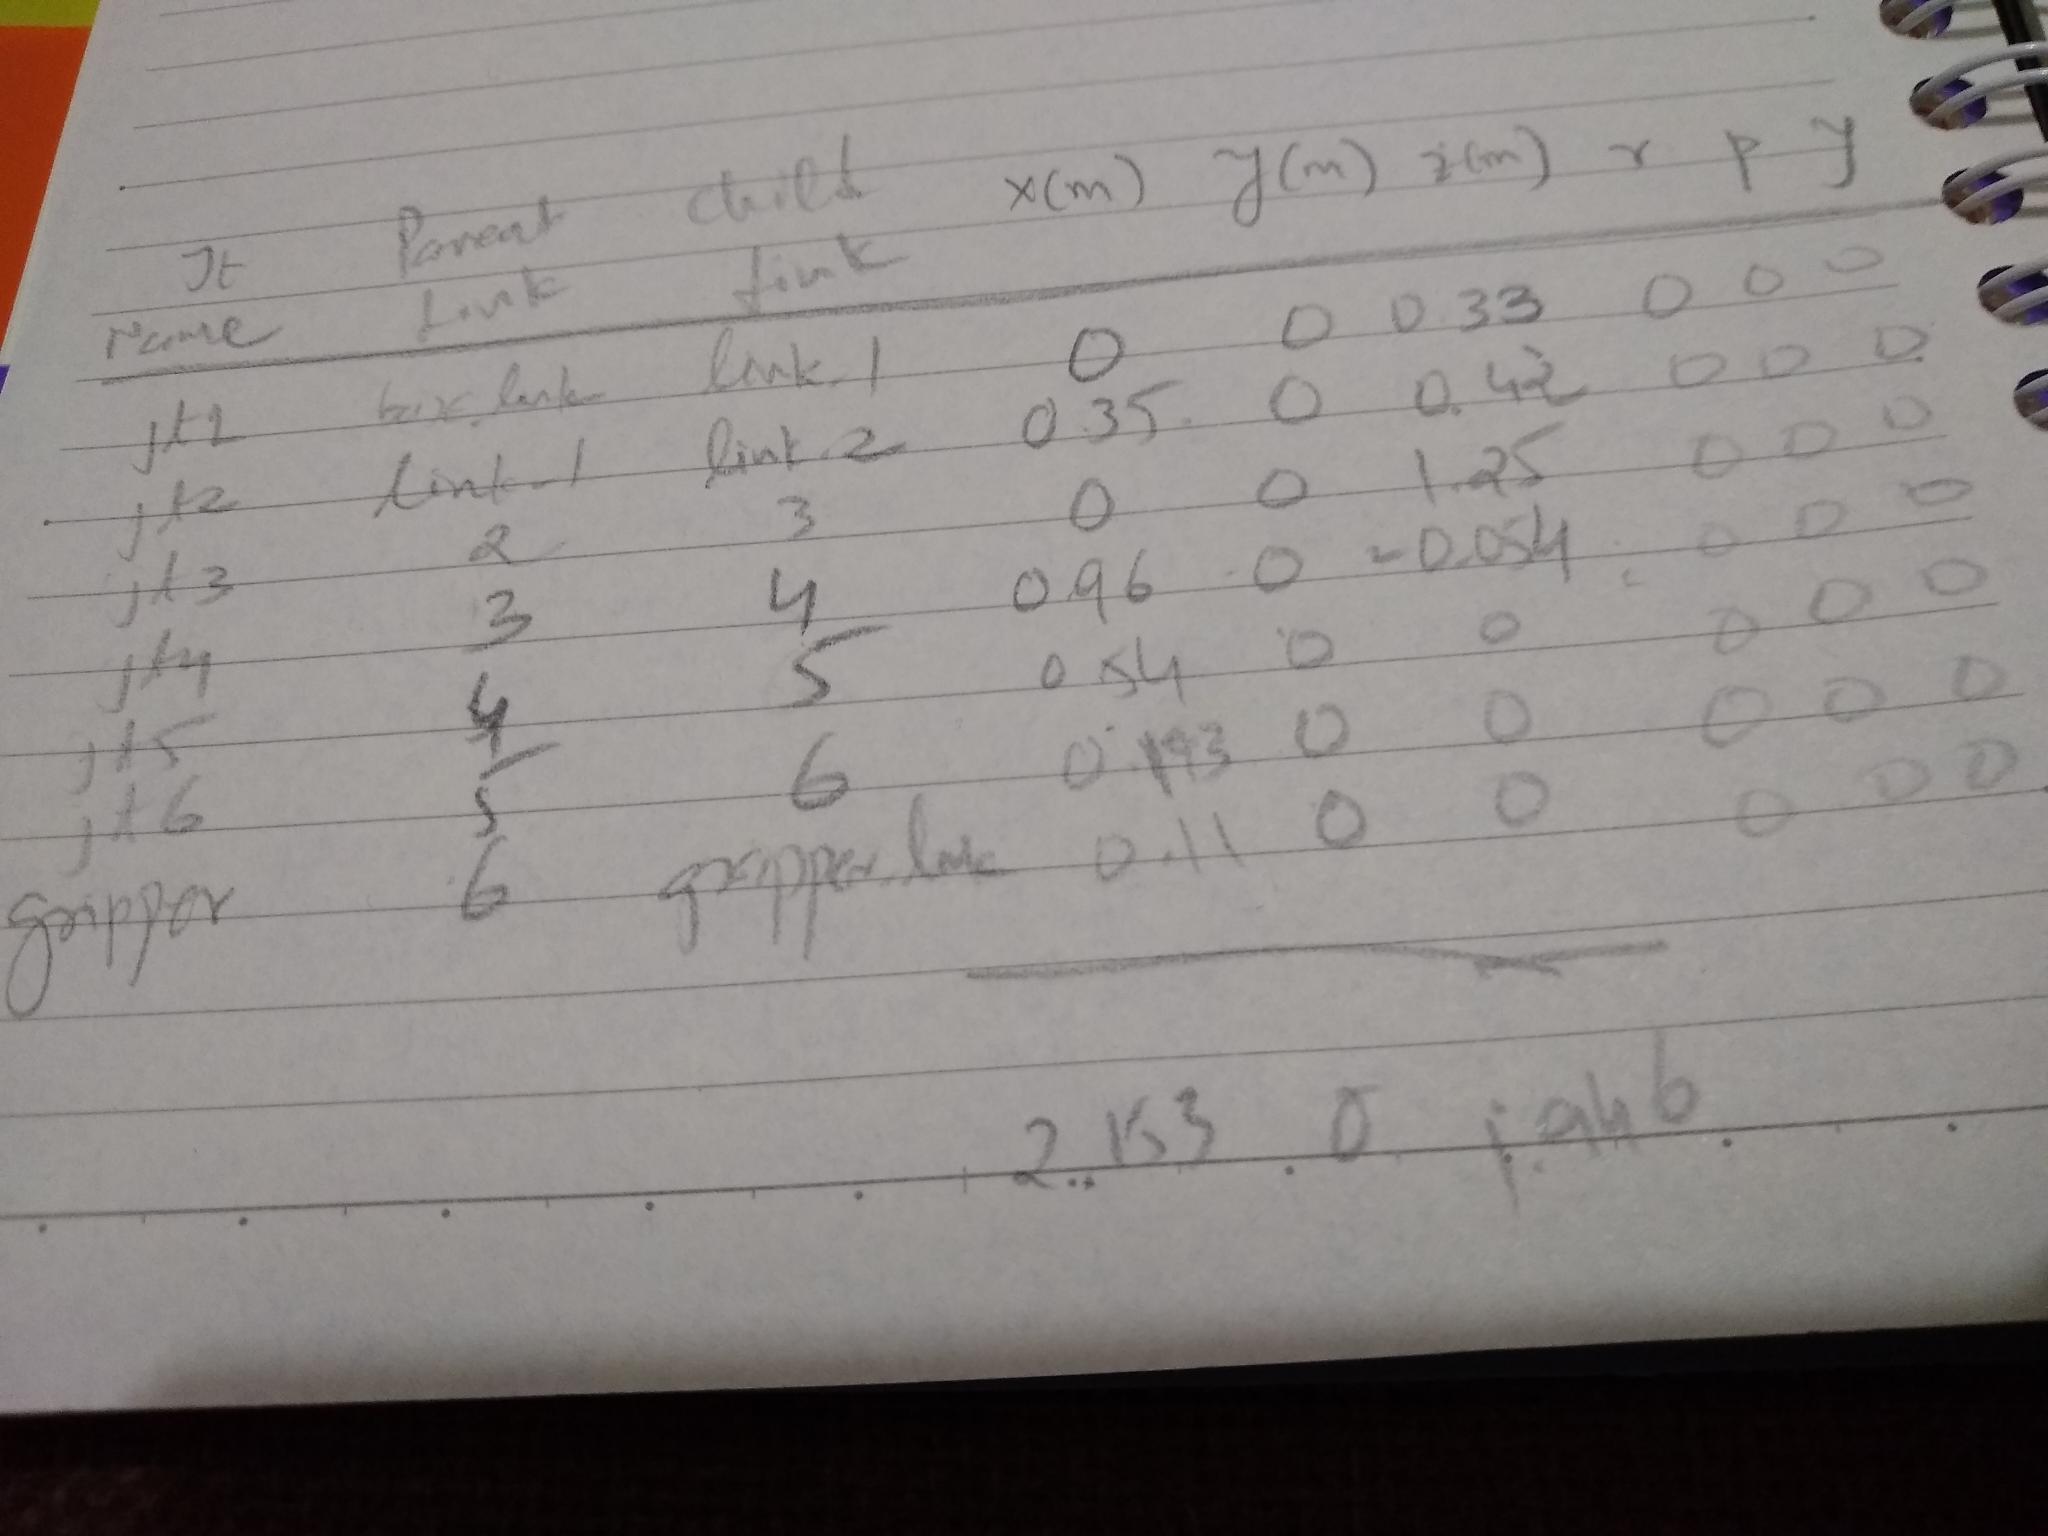 Jt Parent child x(m) y(m) z(m) r p y
Name Link Link
jt1 link_1 0 0 0.33 0 0 0
jt2 link_1 link_2 0.35 0 0.42 0 0 0
jt3 2 3 0 0 1.25 0 0 0
jt4 3 4 0.96 0 -0.054 0 0 0
jt5 4 5 0.54 0 0 0 0 0
jt6 5 6 0.193 0 0 0 0 0
gripper 6 gripper_link 0.11 0 0 0 0 0
2.153 0